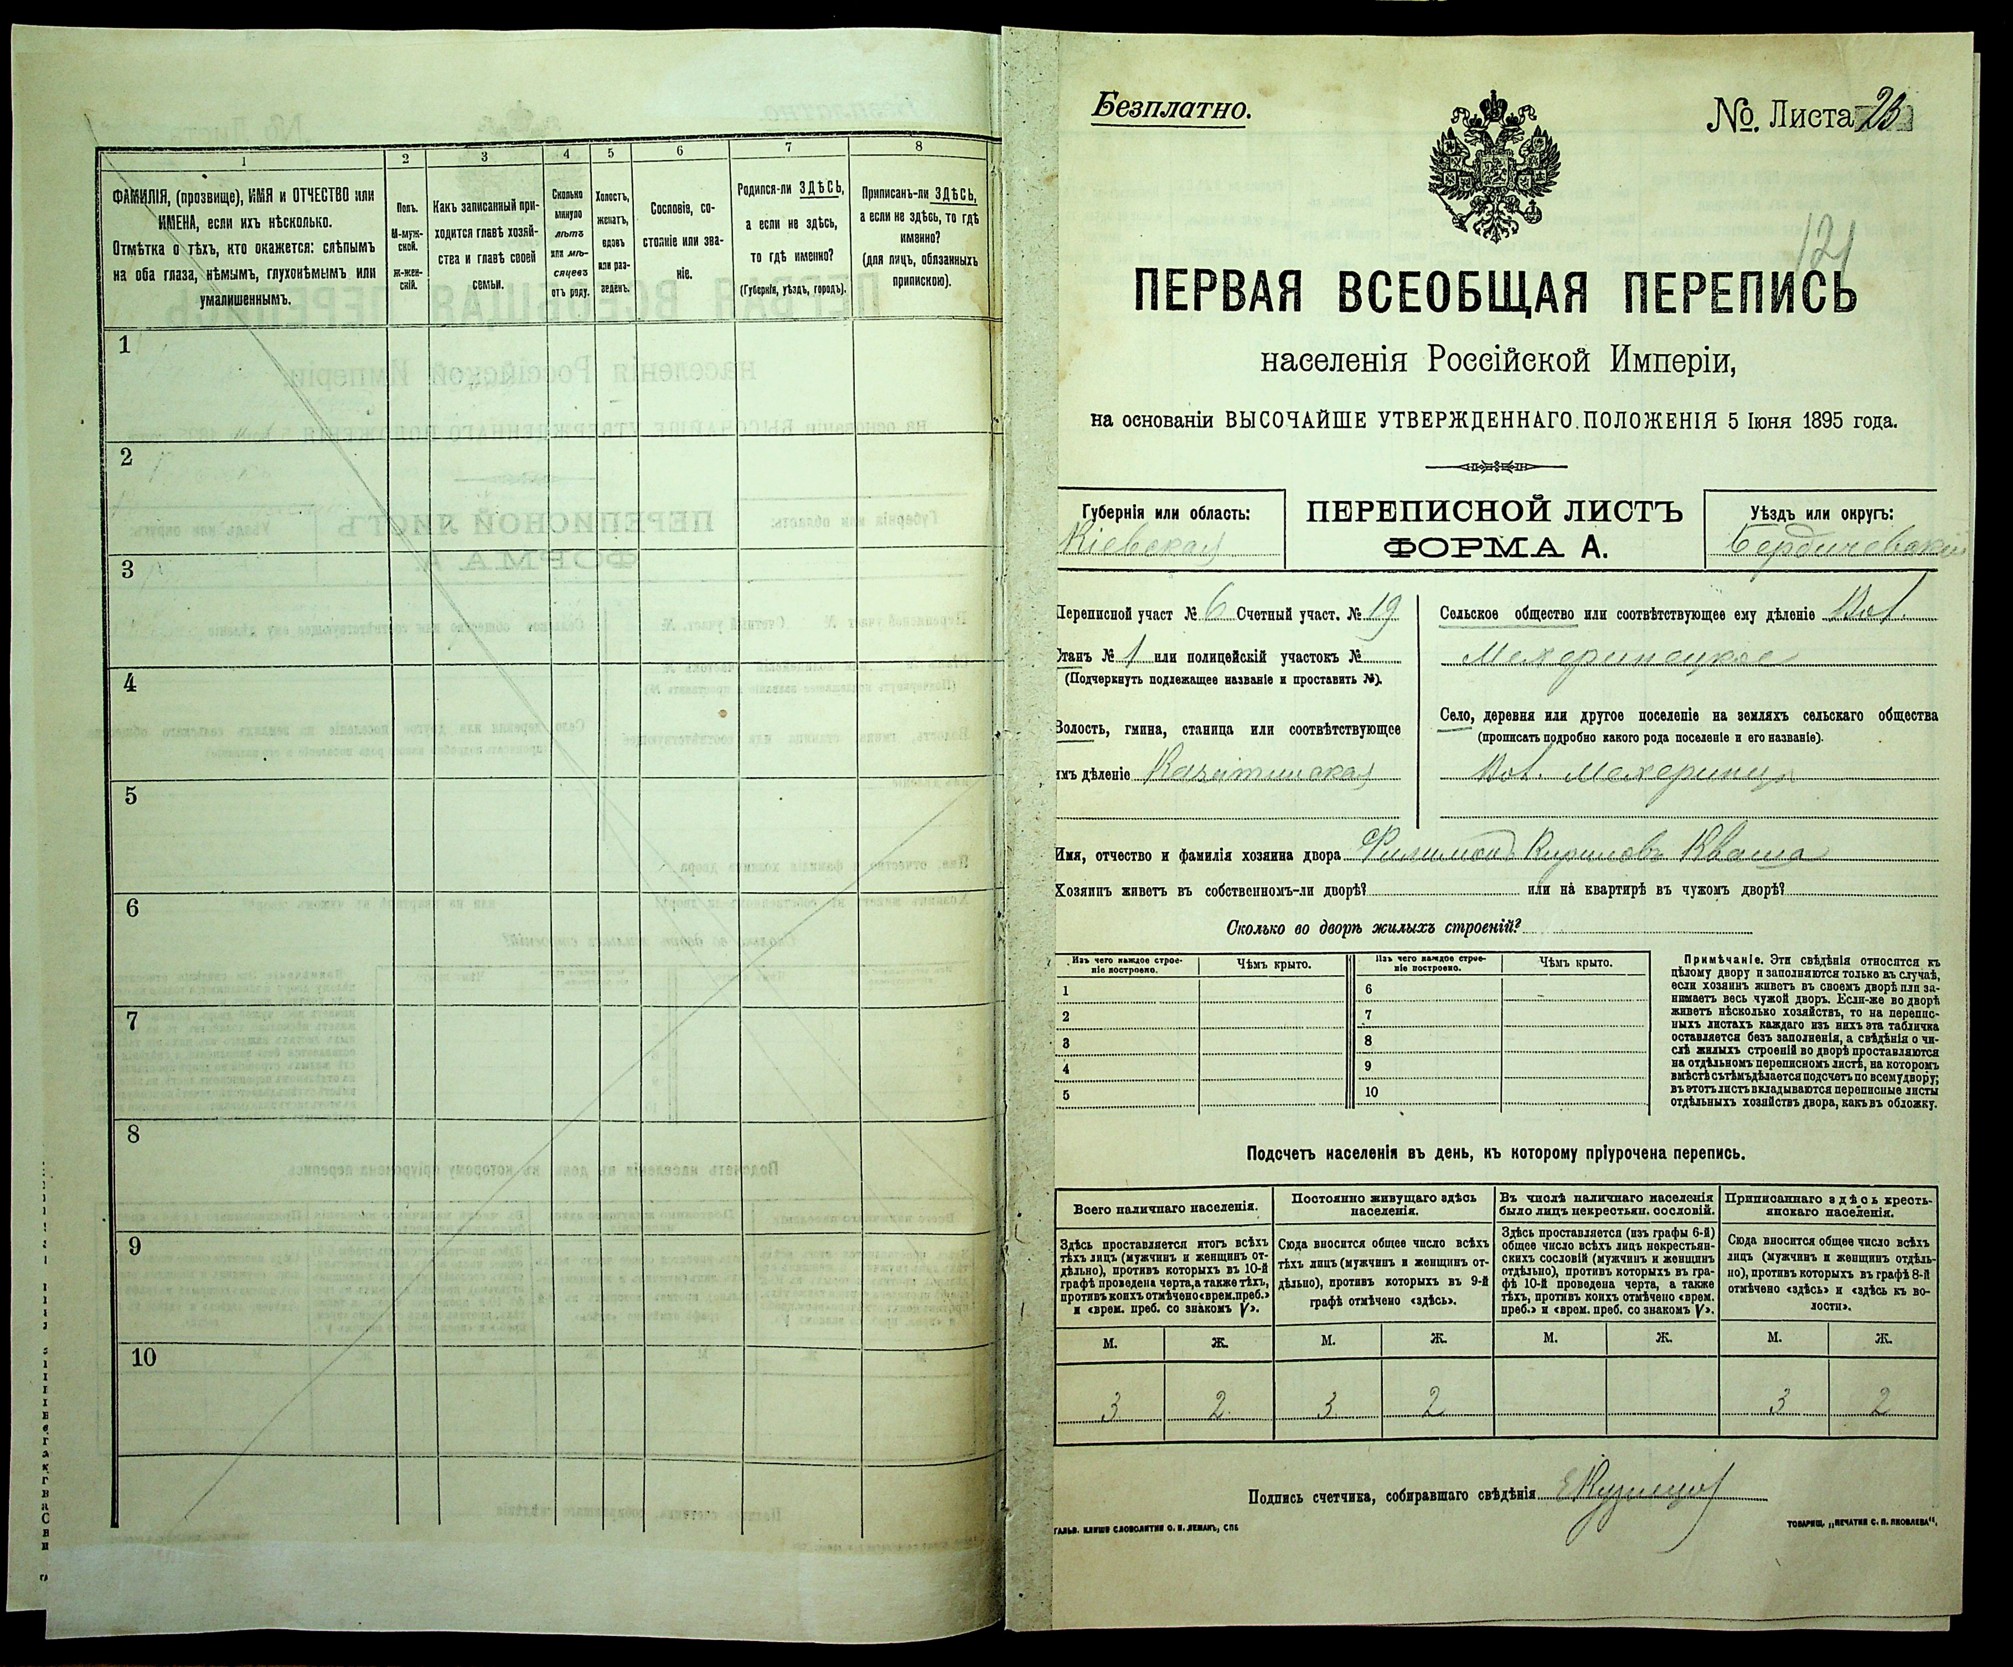 1
2
3
4
5
6
7
8
ФАМИЛІЯ, (прозвище), ИМЯ и ОТЧЕСТВО или
ИМЕНА, если ихъ нѣсколько.
Отмѣтка о тѣхъ, кто окажется: слѣпымъ
на оба глаза, нѣмымъ, глухонѣмымъ или
умалишеннымъ.
Полъ.
М-муж-
ской.
Ж-жен-
скій.
Какъ записанный при-
ходится главѣ хозяй-
ства и главѣ своей
семьи.
Сколько
минуло
лѣтъ
или мѣ-
сяцевъ
отъ роду.
Холостъ,
женатъ,
вдовъ
или раз-
веденъ.
Сословіе, со-
стояніе или зва-
ніе.
Родился-ли ЗДѢСЬ,
а если не здѣсь,
то гдѣ именно?
(Губернія, уѣздъ, городъ).
Приписанъ-ли ЗДѢСЬ,
а если не здѣсь, то гдѣ
именно?
(для лицъ, обязанныхъ
припискою).
1
2
3
4
5
6
7
8
9
10
Безплатно.
№. Листа 23
121
ПЕРВАЯ ВСЕОБЩАЯ ПЕРЕПИСЬ
населенія Россійской Имперіи,
на основаніи ВЫСОЧАЙШЕ УТВЕРЖДЕННАГО ПОЛОЖЕНІЯ 5 Іюня 1895 года.
Губернія или область:
Кіевская
ПЕРЕПИСНОЙ ЛИСТЪ
ФОРМА А.
Уѣздъ или округъ:
Бердичевскій
Переписной участ № 6 Счетный участ. № 19
Станъ № 1 или полицейскій участокъ №
(Подчеркнуть подлежащее названіе и проставить №).
Волость, гмина, станица или соотвѣтствующее
имъ дѣленіе Казатинская
Сельское общество или соотвѣтствующее ему дѣленіе
Махаринецкое
Село, деревня или другое поселеніе на земляхъ сельскаго общества
(прописать подробно какого рода поселеніе и его названіе).
Махаринцы
Имя, отчество и фамилія хозяина двора Филимонъ Кириловъ Кваша
Хозяинъ живетъ въ собственномъ-ли дворѣ? или на квартирѣ въ чужомъ дворѣ?
Сколько во дворѣ жилыхъ строеній?
Изъ чего каждое строе-
ніе построено.
Чѣмъ крыто.
Изъ чего каждое строе-
ніе построено.
Чѣмъ крыто.
1
6
2
7
3
8
4
9
5
10
Примѣчаніе. Эти свѣдѣнія относятся къ
цѣлому двору и заполняются только въ случаѣ,
если хозяинъ живетъ въ своемъ дворѣ или за-
нимаетъ весь чужой дворъ. Если-же во дворѣ
живетъ нѣсколько хозяйствъ, то на перепис-
ныхъ листахъ каждаго изъ нихъ эта табличка
оставляется безъ заполненія, а свѣдѣнія о чи-
слѣ жилыхъ строеній во дворѣ проставляются
на отдѣльномъ переписномъ листѣ, на которомъ
вмѣстѣ съ тѣмъ дѣлается подсчетъ по всему двору;
въ этотъ листъ вкладываются переписные листы
отдѣльныхъ хозяйствъ двора, какъ въ обложку.
Подсчетъ населенія въ день, къ которому пріурочена перепись.
Всего наличнаго населенія.
Постоянно живущаго здѣсь
населенія.
Въ числѣ наличнаго населенія
было лицъ некрестьян. сословій.
Приписаннаго здѣсь кресть-
янскаго населенія.
Здѣсь проставляется итогъ всѣхъ
тѣхъ лицъ (мужчинъ и женщинъ от-
дѣльно), противъ которыхъ въ 10-й
графѣ проведена черта, а также тѣхъ,
противъ коихъ отмѣчено «врем. преб.»
и «врем. преб. со знакомъ V».
Сюда вносится общее число всѣхъ
тѣхъ лицъ (мужчинъ и женщинъ от-
дѣльно), противъ которыхъ въ 9-й
графѣ отмѣчено «здѣсь».
Здѣсь проставляется (изъ графы 6-й)
общее число всѣхъ лицъ некрестьян-
скихъ сословій (мужчинъ и женщинъ
отдѣльно), противъ которыхъ въ гра-
фѣ 10-й проведена черта, а также
тѣхъ, противъ коихъ отмѣчено «врем.
преб.» и «врем. преб. со знакомъ V».
Сюда вносится общее число всѣхъ
лицъ (мужчинъ и женщинъ отдѣль-
но), противъ которыхъ въ графѣ 8-й
отмѣчено «здѣсь» и «здѣсь къ во-
лости».
М.
Ж.
М.
Ж.
М.
Ж.
М.
Ж.
3
2
3
2
3
2
Подпись счетчика, собиравшаго свѣдѣнія
ГАЛЬВ. КЛИШЕ СЛОВОЛИТНИ О. И. ЛЕМАНЪ, СПБ
ТОВАРИЩ. „ПЕЧАТНЯ С. П. ЯКОВЛЕВА“.